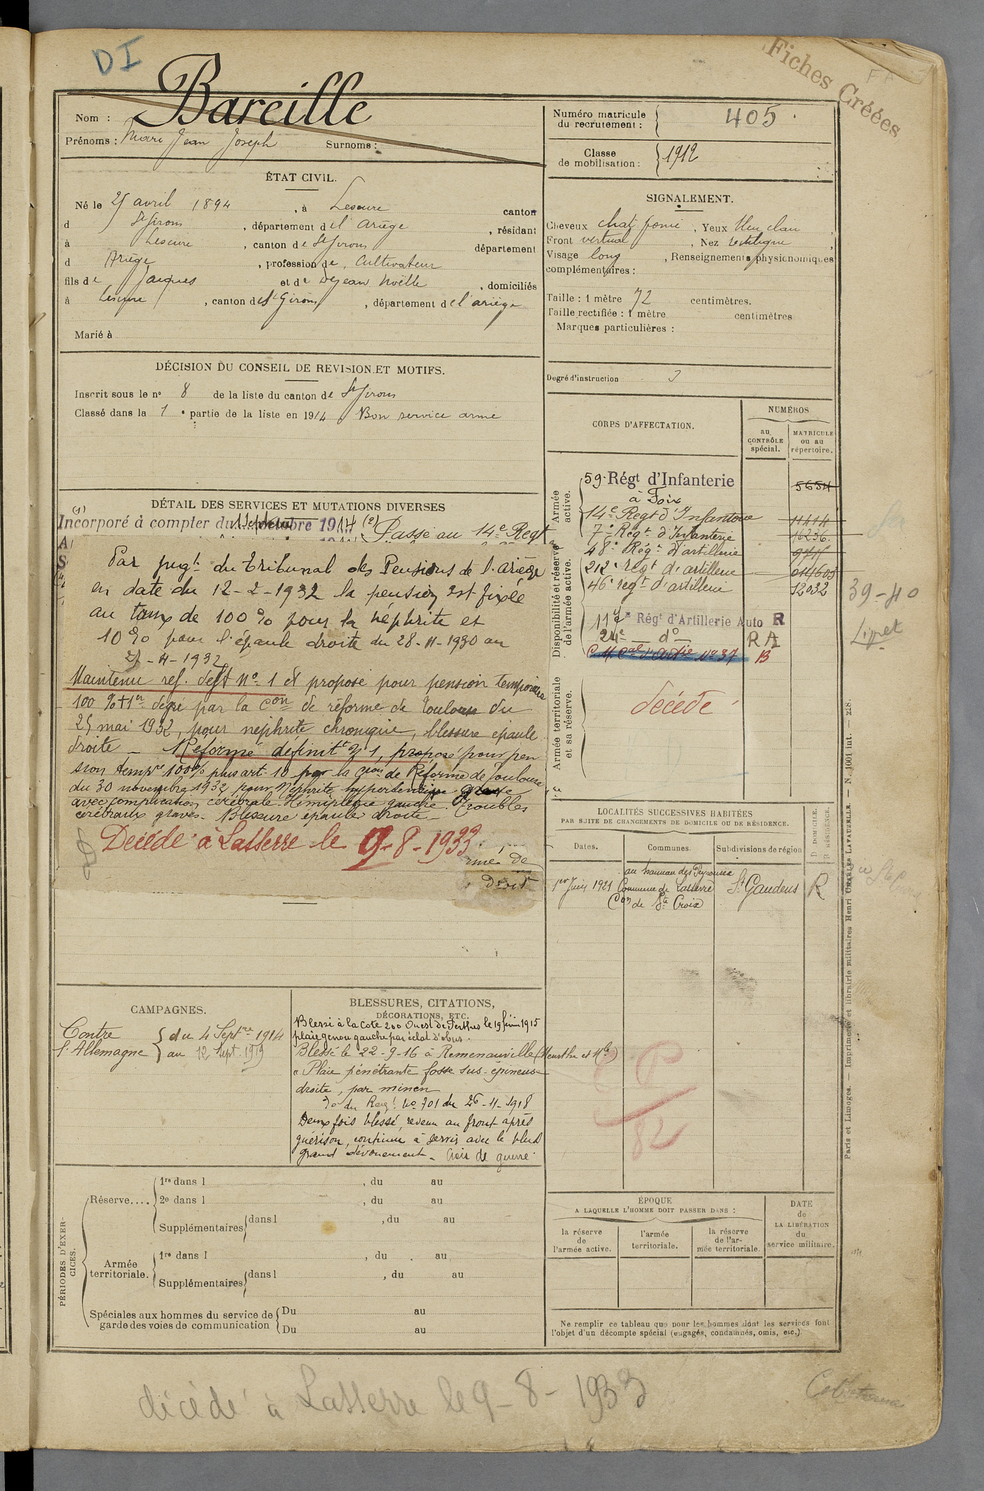 DI
Fiches Créées
Nom : Bareille
Prénoms : Marie Jean Joseph Surnoms :
Numéro matricule du recrutement : 405
Classe de mobilisation : 1912
ÉTAT CIVIL.
Né le 25 avril 1894, à Lescure canton
d St Girons, département de l'Ariège, résidant
à Lescure, canton de St Girons département
d Ariège, profession de Cultivateur
fils de Jacques et de Dejean Noëlle, domiciliés
à Lescure, canton de St Girons, département de l'ariège
Marié à
SIGNALEMENT.
Cheveux chat. foncé, Yeux bleu clair
Front vertical, Nez rectiligne
Visage long, Renseignements physionomiques
complémentaires :
Taille : 1 mètre 72 centimètres.
Taille rectifiée : 1 mètre centimètres
Marques particulières :
Degré d'instruction 3
DÉCISION DU CONSEIL DE REVISION ET MOTIFS.
Inscrit sous le no 8 de la liste du canton de St Girons
Classé dans la 1e partie de la liste en 1914 Bon service armé
CORPS D'AFFECTATION.
NUMÉROS
au CONTRÔLE spécial.
MATRICULE ou au répertoire.
Armée active.
59e Régt d'Infanterie 5654
à Foix
14e Régt d'Infanterie 11414
7e Régt d'Infanterie 16236
Disponibilité et réserve de l'armée active.
48e Rég. d'artillerie
212e Régt d'artillerie
46e régt d'artillerie 12032
117e Régt d'Artillerie Auto R
24e do R A
B
Armée territoriale et sa réserve.
décédé
39-40
DÉTAIL DES SERVICES ET MUTATIONS DIVERSES
Incorporé à compter du 1 Septembre 1914 Passé au 14e Regt
Par jugt du Tribunal des Pensions de l'Ariège
en date du 12-2-1932 la pension est fixée
au taux de 100 % pour la néphrite et
10 % pour l'épaule droite du 28-11-1930 au
Maintenu ref. déft No 1 et proposé pour pension temporaire
100 % + 1er degré par la Con de réforme de Toulouse du
25 mai 1932, pour nephrite chronique, blessure épaule
droite - Réformé définitt no 1, proposé pour pen
sion tempre 100% plus art. 10 par la Con de Réforme de Toulouse
du 30 novembre 1932 pour Néphrite hypertensive grave
avec complication cérébrale Hémiplégie gauche Troubles
cérébraux graves - Blessure épaule droite -
Décédé à Lasserre le 9-8-1933
LOCALITÉS SUCCESSIVES HABITÉES
PAR SUITE DE CHANGEMENTS DE DOMICILE OU DE RÉSIDENCE.
Dates. Communes. Subdivisions de région D DOMICILE. R RÉSIDENCE.
1er Juin 1921 au hameau des
Commune de Lasserre St Gaudens R
Con de Ste Croix
CAMPAGNES.
Contre l'Allemagne
du 4 Septre 1914
au 12 Sept. 1919
BLESSURES, CITATIONS,
DÉCORATIONS, ETC.
Blessé à la Cote 200 Ouest de Perthes le 19 Juin 1915
plaie genou gauche par éclat d'obus.
Blessé le 22-9-16 à Remenauville (Meurthe et Mlle)
Plaie pénétrante fosse sus-épineuse
droite, par minen
do du Régt No 701 du 26-4-1918
Deux fois blessé, revenu au front après
guérison, continue à servir avec le plus
grand dévouement - Croix de guerre.
PÉRIODES D'EXERCICES.
Réserve....
1re dans l , du au
2e dans l , du au
Supplémentaires dans l , du au
Armée territoriale.
1re dans l , du au
Supplémentaires dans l , du au
Spéciales aux hommes du service de garde des voies de communication
Du au
Du au
ÉPOQUE
A LAQUELLE L'HOMME DOIT PASSER DANS :
la réserve de l'armée active.
l'armée territoriale.
la réserve de l'armée territoriale.
DATE de LA LIBÉRATION du service militaire.
Ne remplir ce tableau que pour les hommes dont les services font
l'objet d'un décompte spécial (engagés, condamnés, omis, etc.)
Paris et Limoges. — Imprimerie et librairie militaires Henri CHARLES-LAVAUZELLE
décédé à Lasserre le 9-8-1933